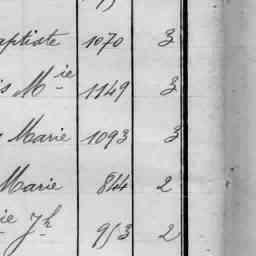 aptiste 1070 3
s Mie 1149 3
Marie 1093 3
Marie 844 2
ie Jh 953 2